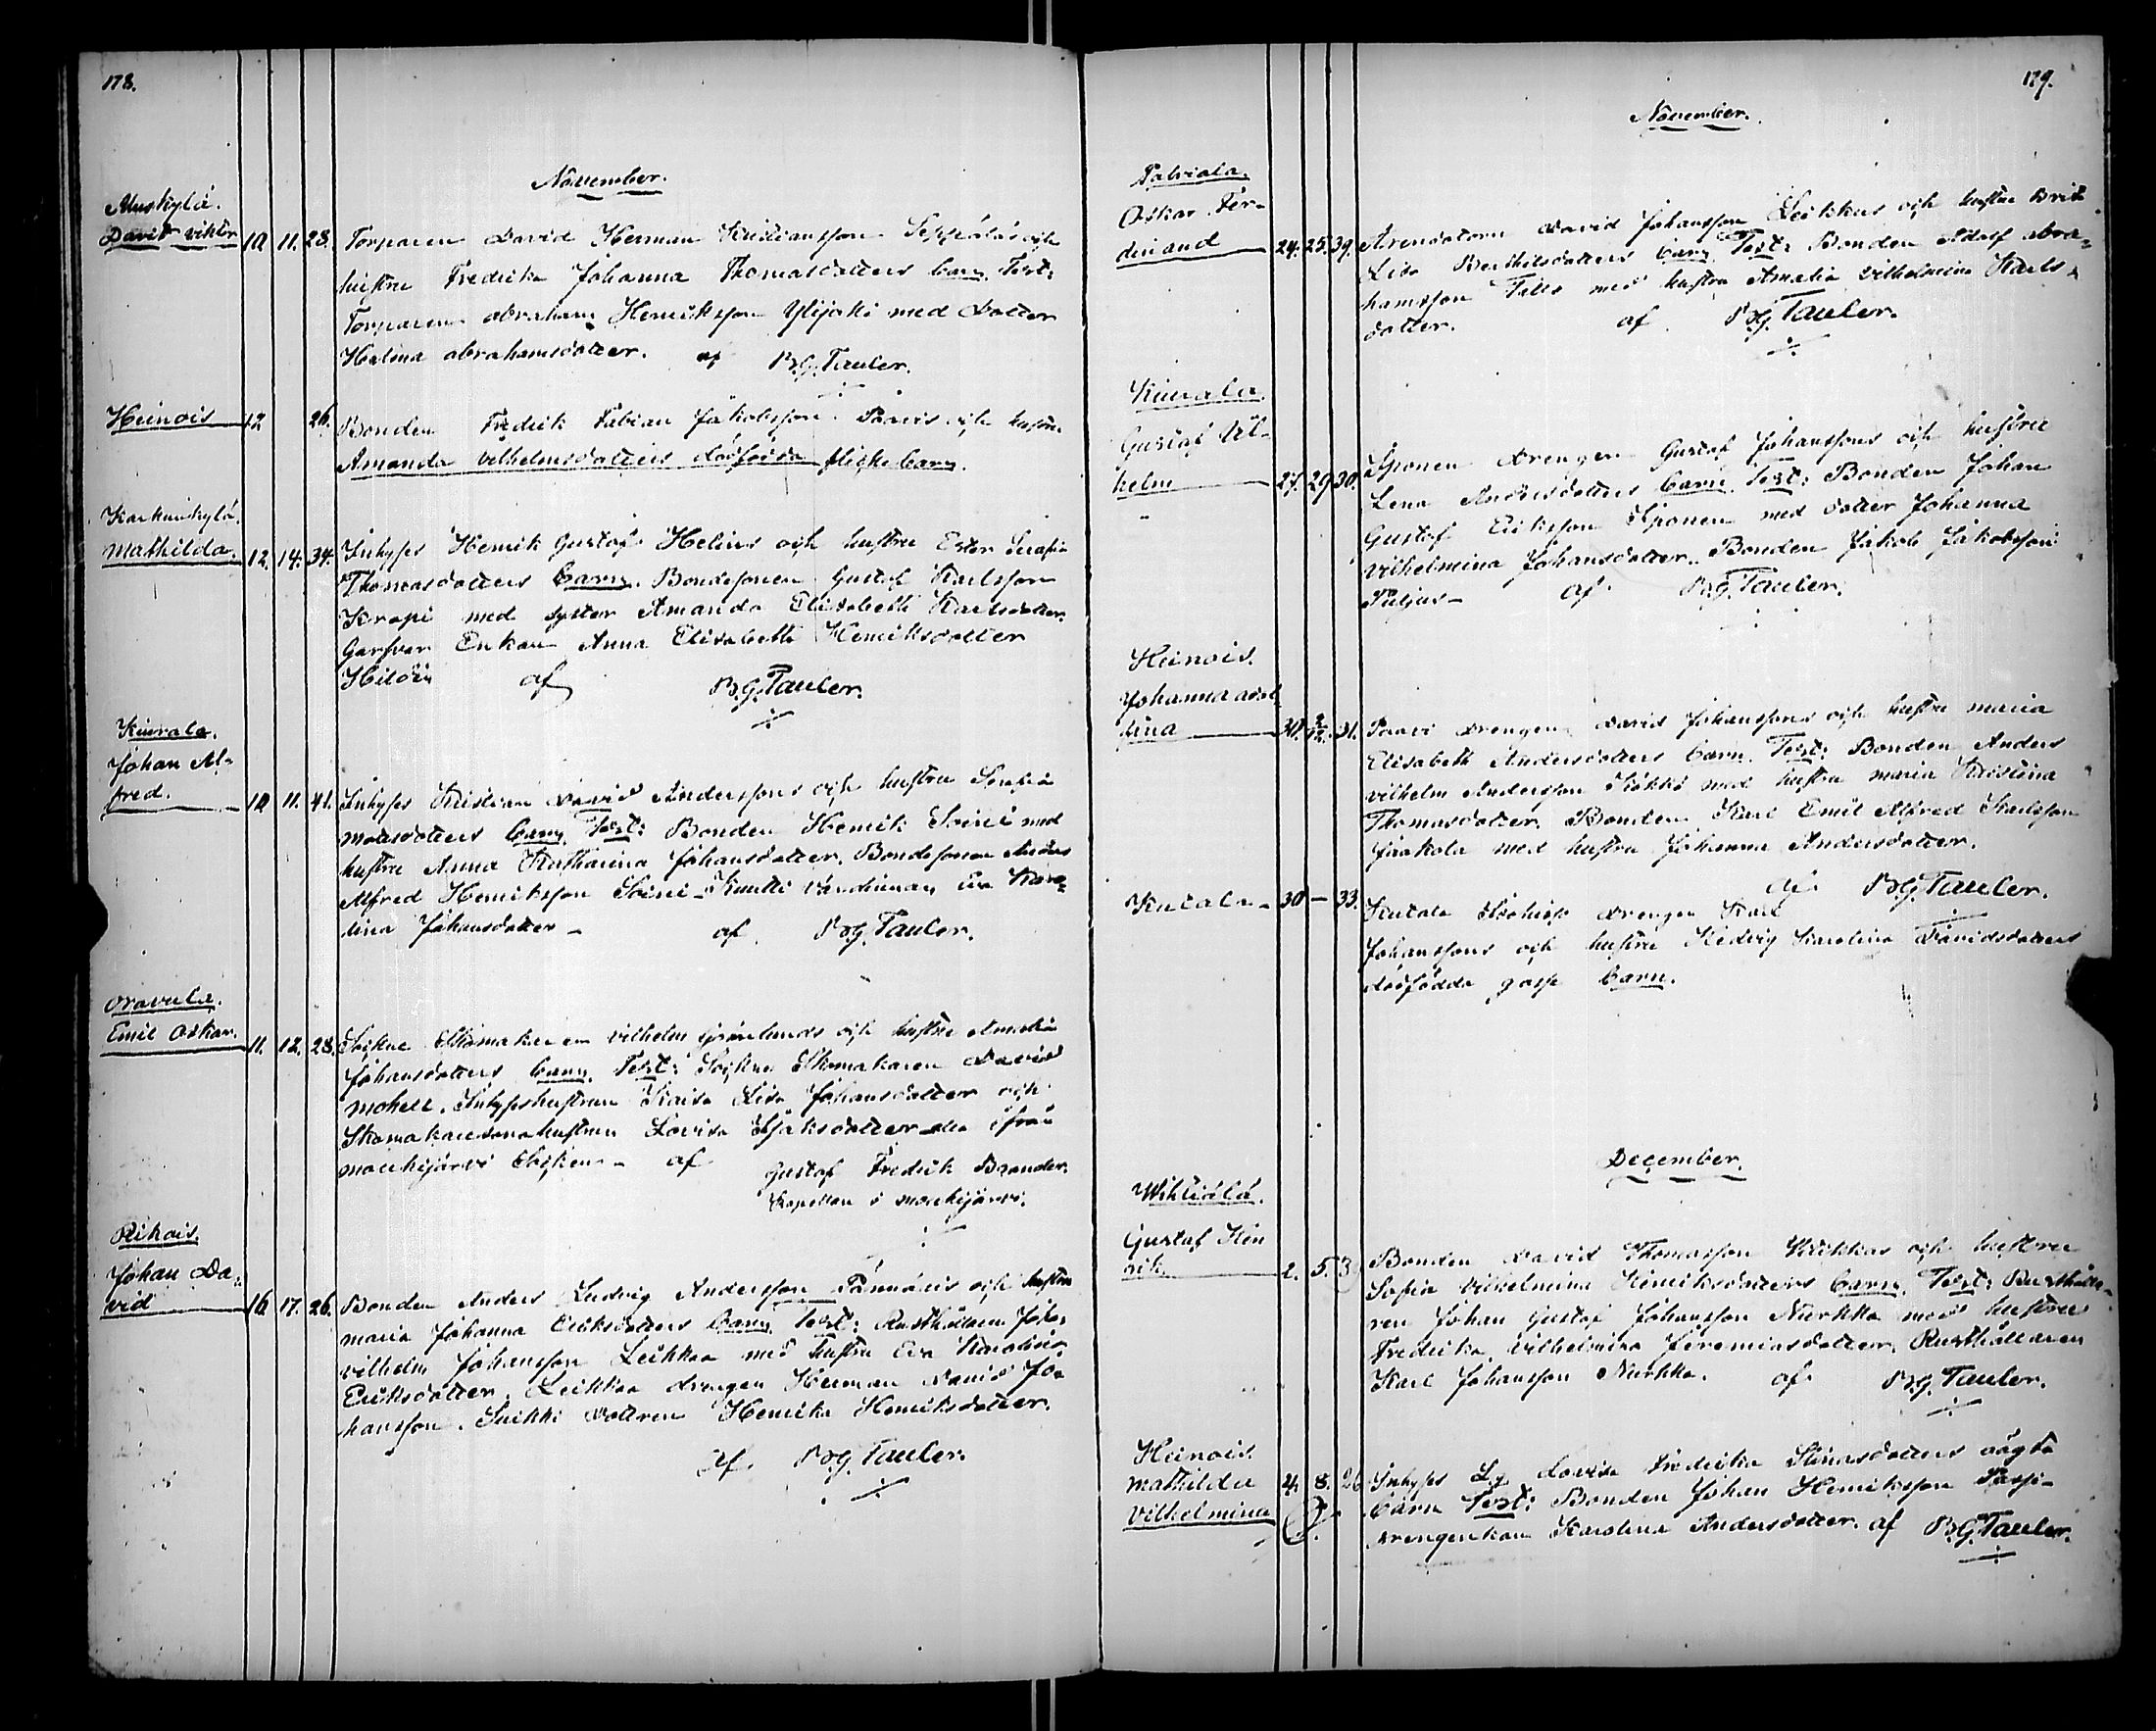 178.
November.
Muskylä.
David Viktor 10. 11. 28. Torparen David Herman Kristiansson Seppäläs och
hustru Fredrika Johanna Thomasdotters barn. Test:
Torparen Abraham Henriksson Ylijoki med Dotter
Halma Abrahamsdotter. af B.G. Tauler.
Heinois 12 26. Bonden Fredrik Fabian Jakobsson Paavis och hustru
Amanda Vilhelmsdotters dödfödda flicke barn.
Karkunkylä.
Mathilda. 12. 14. 34. Inhyses Henrik Gustaf Helins och hustru Ester Serafia
Thomasdotters barn. Bondesonen Gustaf Karlsson
Krapi med syster Amanda Elisabeth Karlsdotter.
Garfvar Enkan Anna Elisabeth Henriksdotter
Hildén af B.G. Tauler.
Kiurala.
Johan Al-
fred. 10. 11. 41. Inhyses Kristian David Anderssons och hustru Serafia
Matsdotters barn. Test: Bonden Henrik Soini med
hustru Anna Katharina Johansdotter. Bondesonen Anders
Alfred Henriksson Soini - Knutti värdinnan Eva Karo-
lina Johansdotter - af B.G. Tauler.
Oravula.
Emil Oskar. 11. 12. 28. Sockne Skomakaren Vilhelm Grönlunds och hustru Amalia
Johansdotters barn. Test: Sockne Skomakaren David
Mohell. Inhyseshustrun Kaisa Lisa Johansdotter och
Skomakaresonahustrun Lovisa Isaksdotter alla ifrån
Mouhijärvi Socken - af Gustaf Fredrik Brander.
Kapellan i Mouhijärvi.
Rikais.
Johan Da-
vid 16. 17. 26. Bonden Anders Ludvig Andersson Pännäris och hustru
Maria Johanna Eriksdotters barn. Test: Rusthållaren Johan
Vilhelm Johansson Leikkaa med hustru Eva Karolina
Eriksdotter. Leikkaa drengen Herman David Jo-
hansson. Suikki Dottren Henrika Henriksdotter.
af B.G. Tauler.
179.
November.
Palviala.
Oskar Fer-
dinand 24. 25. 39. Arendatorn David Johansson Leikkus och hustru Brita
Lisa Berthilsdotters barn. Test: Bonden Adolf Abra-
hamsson Talls med hustru Amalia Vilhelmina Karls-
dotter. af B.G. Tauler.
Kiurala.
Gustaf Vil-
helm 27. 29. 30. Iponen Drengen Gustaf Johanssons och hustru
Lena Andersdotters barn. Test: Bonden Johan
Gustaf Eriksson Iponen med dotter Johanna
Vilhelmina Johansdotter. Bonden Jakob Jakobsson
Piiljus - af B.G. Tauler.
Heinois.
Johanna Adol-
fina 30. 2/12. 31. Paavi Drengen David Johanssons och hustru Maria
Elisabeth Andersdotters barn. Test: Bonden Anders
Vilhelm Andersson Kökkö med hustru Maria Kristina
Thomasdotter. Bonden Karl Emil Alfred Karlsson
Jaakola med hustru Johanna Andersdotter.
af B.G. Tauler.
Kutala - 30 - 33. Kutala drengen Karl
Johanssons och hustru Hedvig Karolina Davidsdotters
dödfödda gosse barn.
December.
Wihtiälä.
Gustaf Hen
rik 2. 5. 3 Bonden David Thomasson Uitikkas och hustru
Sofia Vilhelmina Henriksdotters barn. Test: Rusthålla-
ren Johan Gustaf Johansson Nurkka med hustru
Fredrika Vilhelmina Jeremiasdotter. Rusthållaren
Karl Johansson Nurkka. af B.G. Tauler.
Heinois.
Mathilda 4. 8. 26 Inhyses Lg. Lovisa Fredrika Stinasdotters oägta
Vilhelmina barn Test: Bonden Johan Henriksson Paasi-
drengenkan Karolina Andersdotter. af B.G. Tauler.